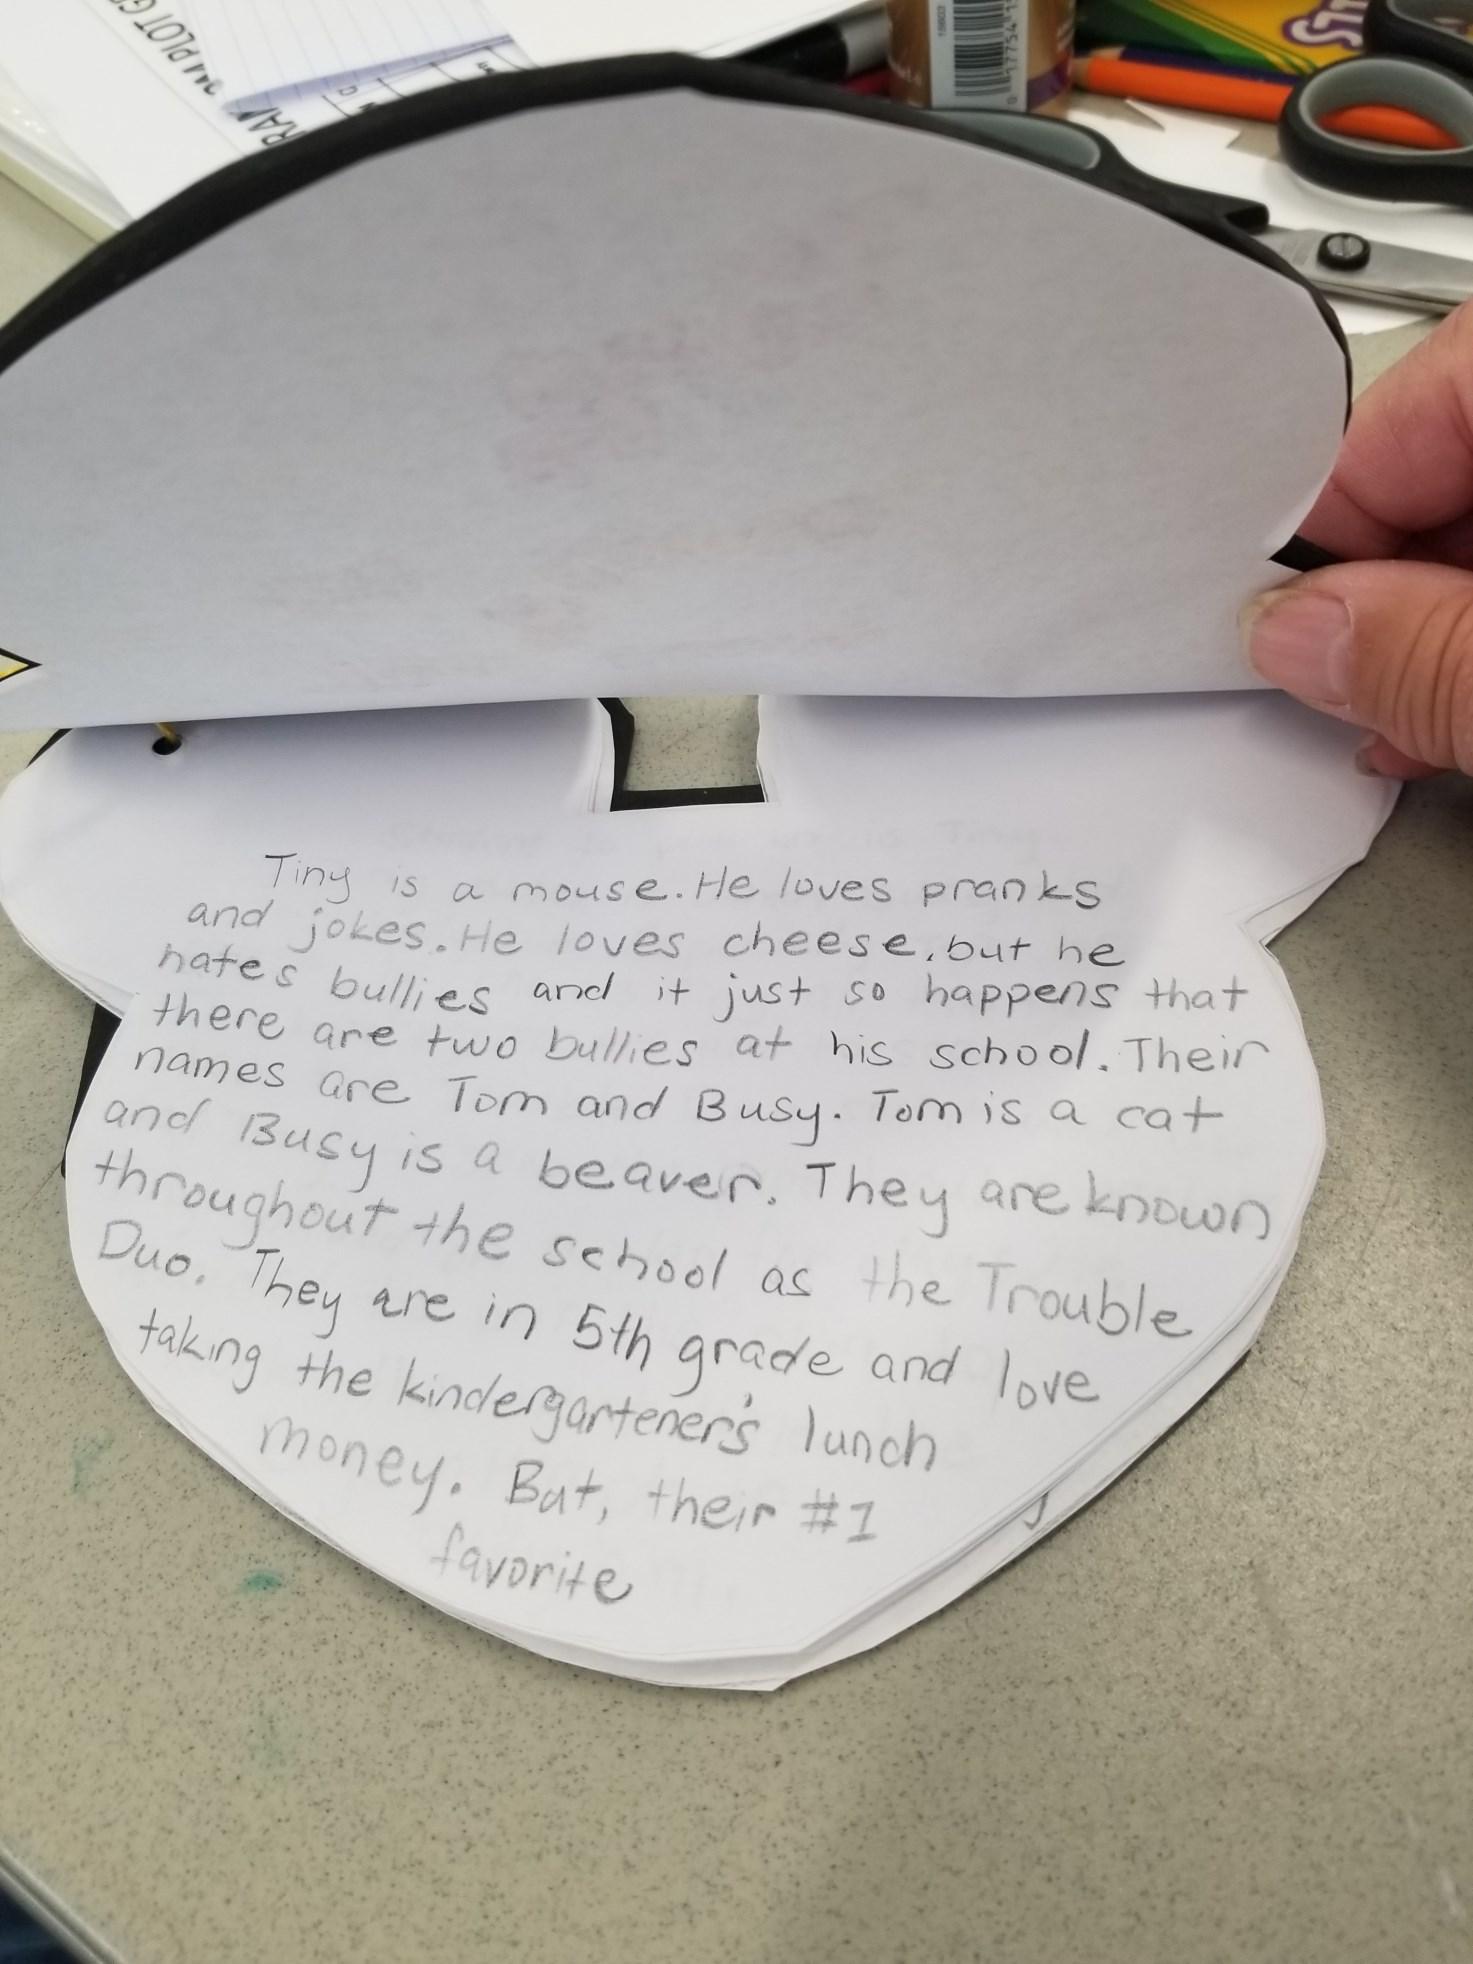 PLOT
18603
0 17754 15
Tiny is a mouse. He loves pranks
and jokes. He loves cheese, but he
hates bullies and it just so happens that
there are two bullies at his school. Their
names are Tom and Busy. Tom is a cat
and Busy is a beaver. They are known
throughout the school as the Trouble
Duo. They are in 5th grade and love
taking the kindergartener's lunch
money. But, their #1
favorite